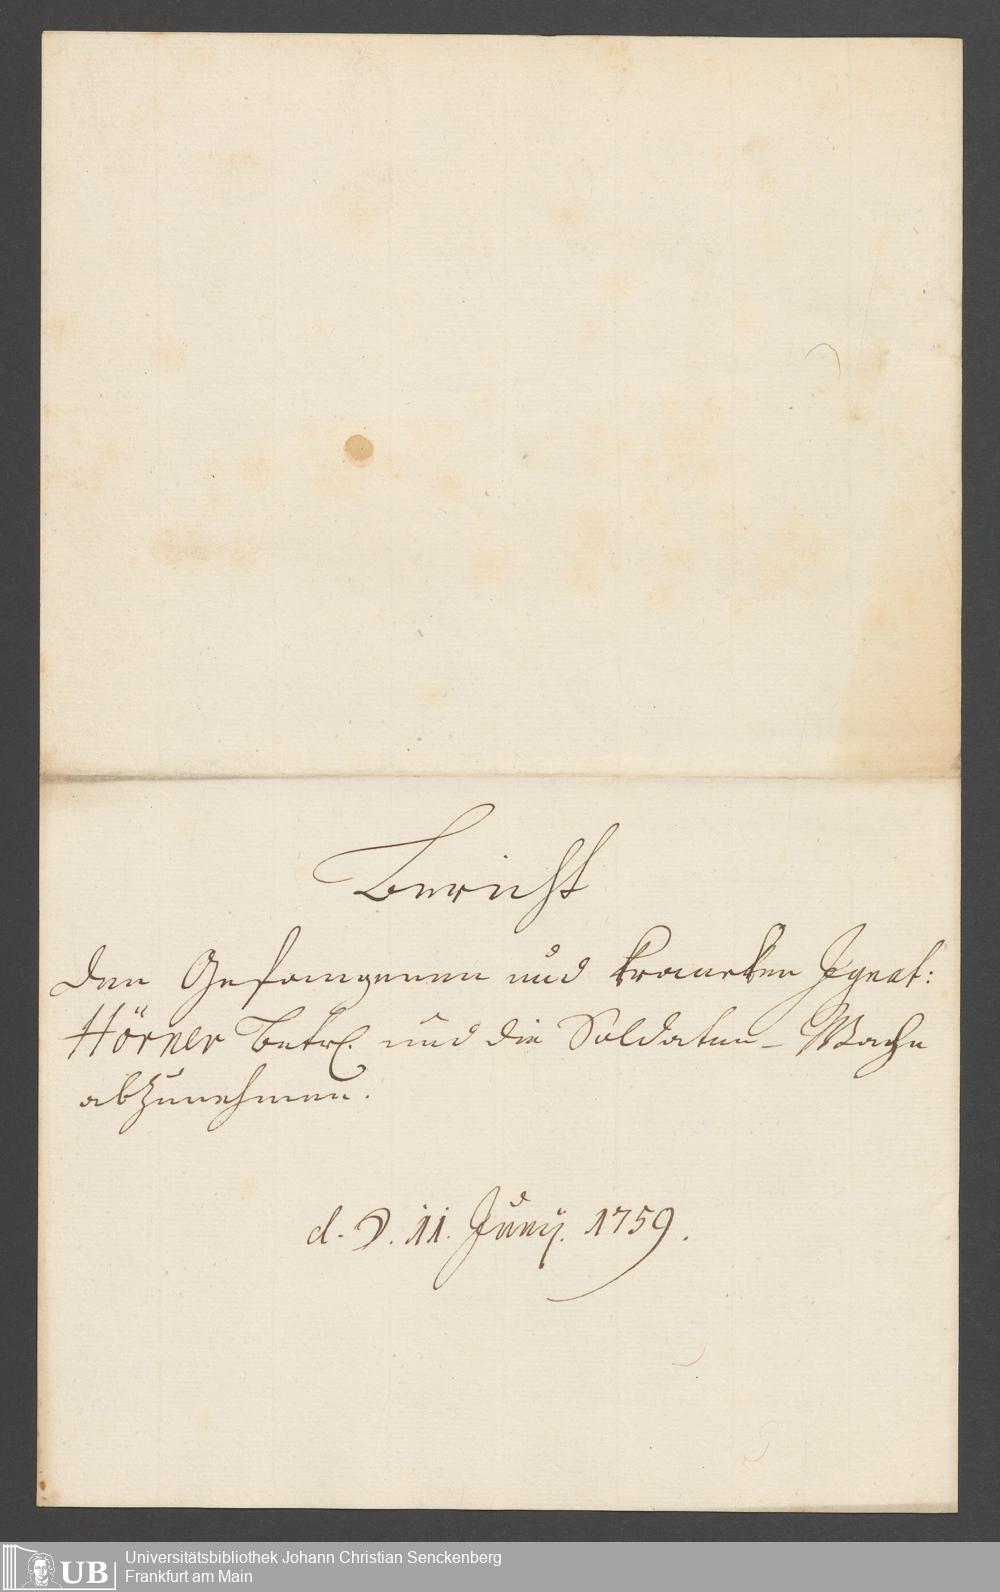 Bericht
den Gefangenen und krancken Ignat:
Hörner betrl. und die Soldaten-Wache
abzunehmen.
d. D. 11. Juny. 1759.
UB
Universitätsbibliothek Johann Christian Senckenberg
Frankfurt am Main